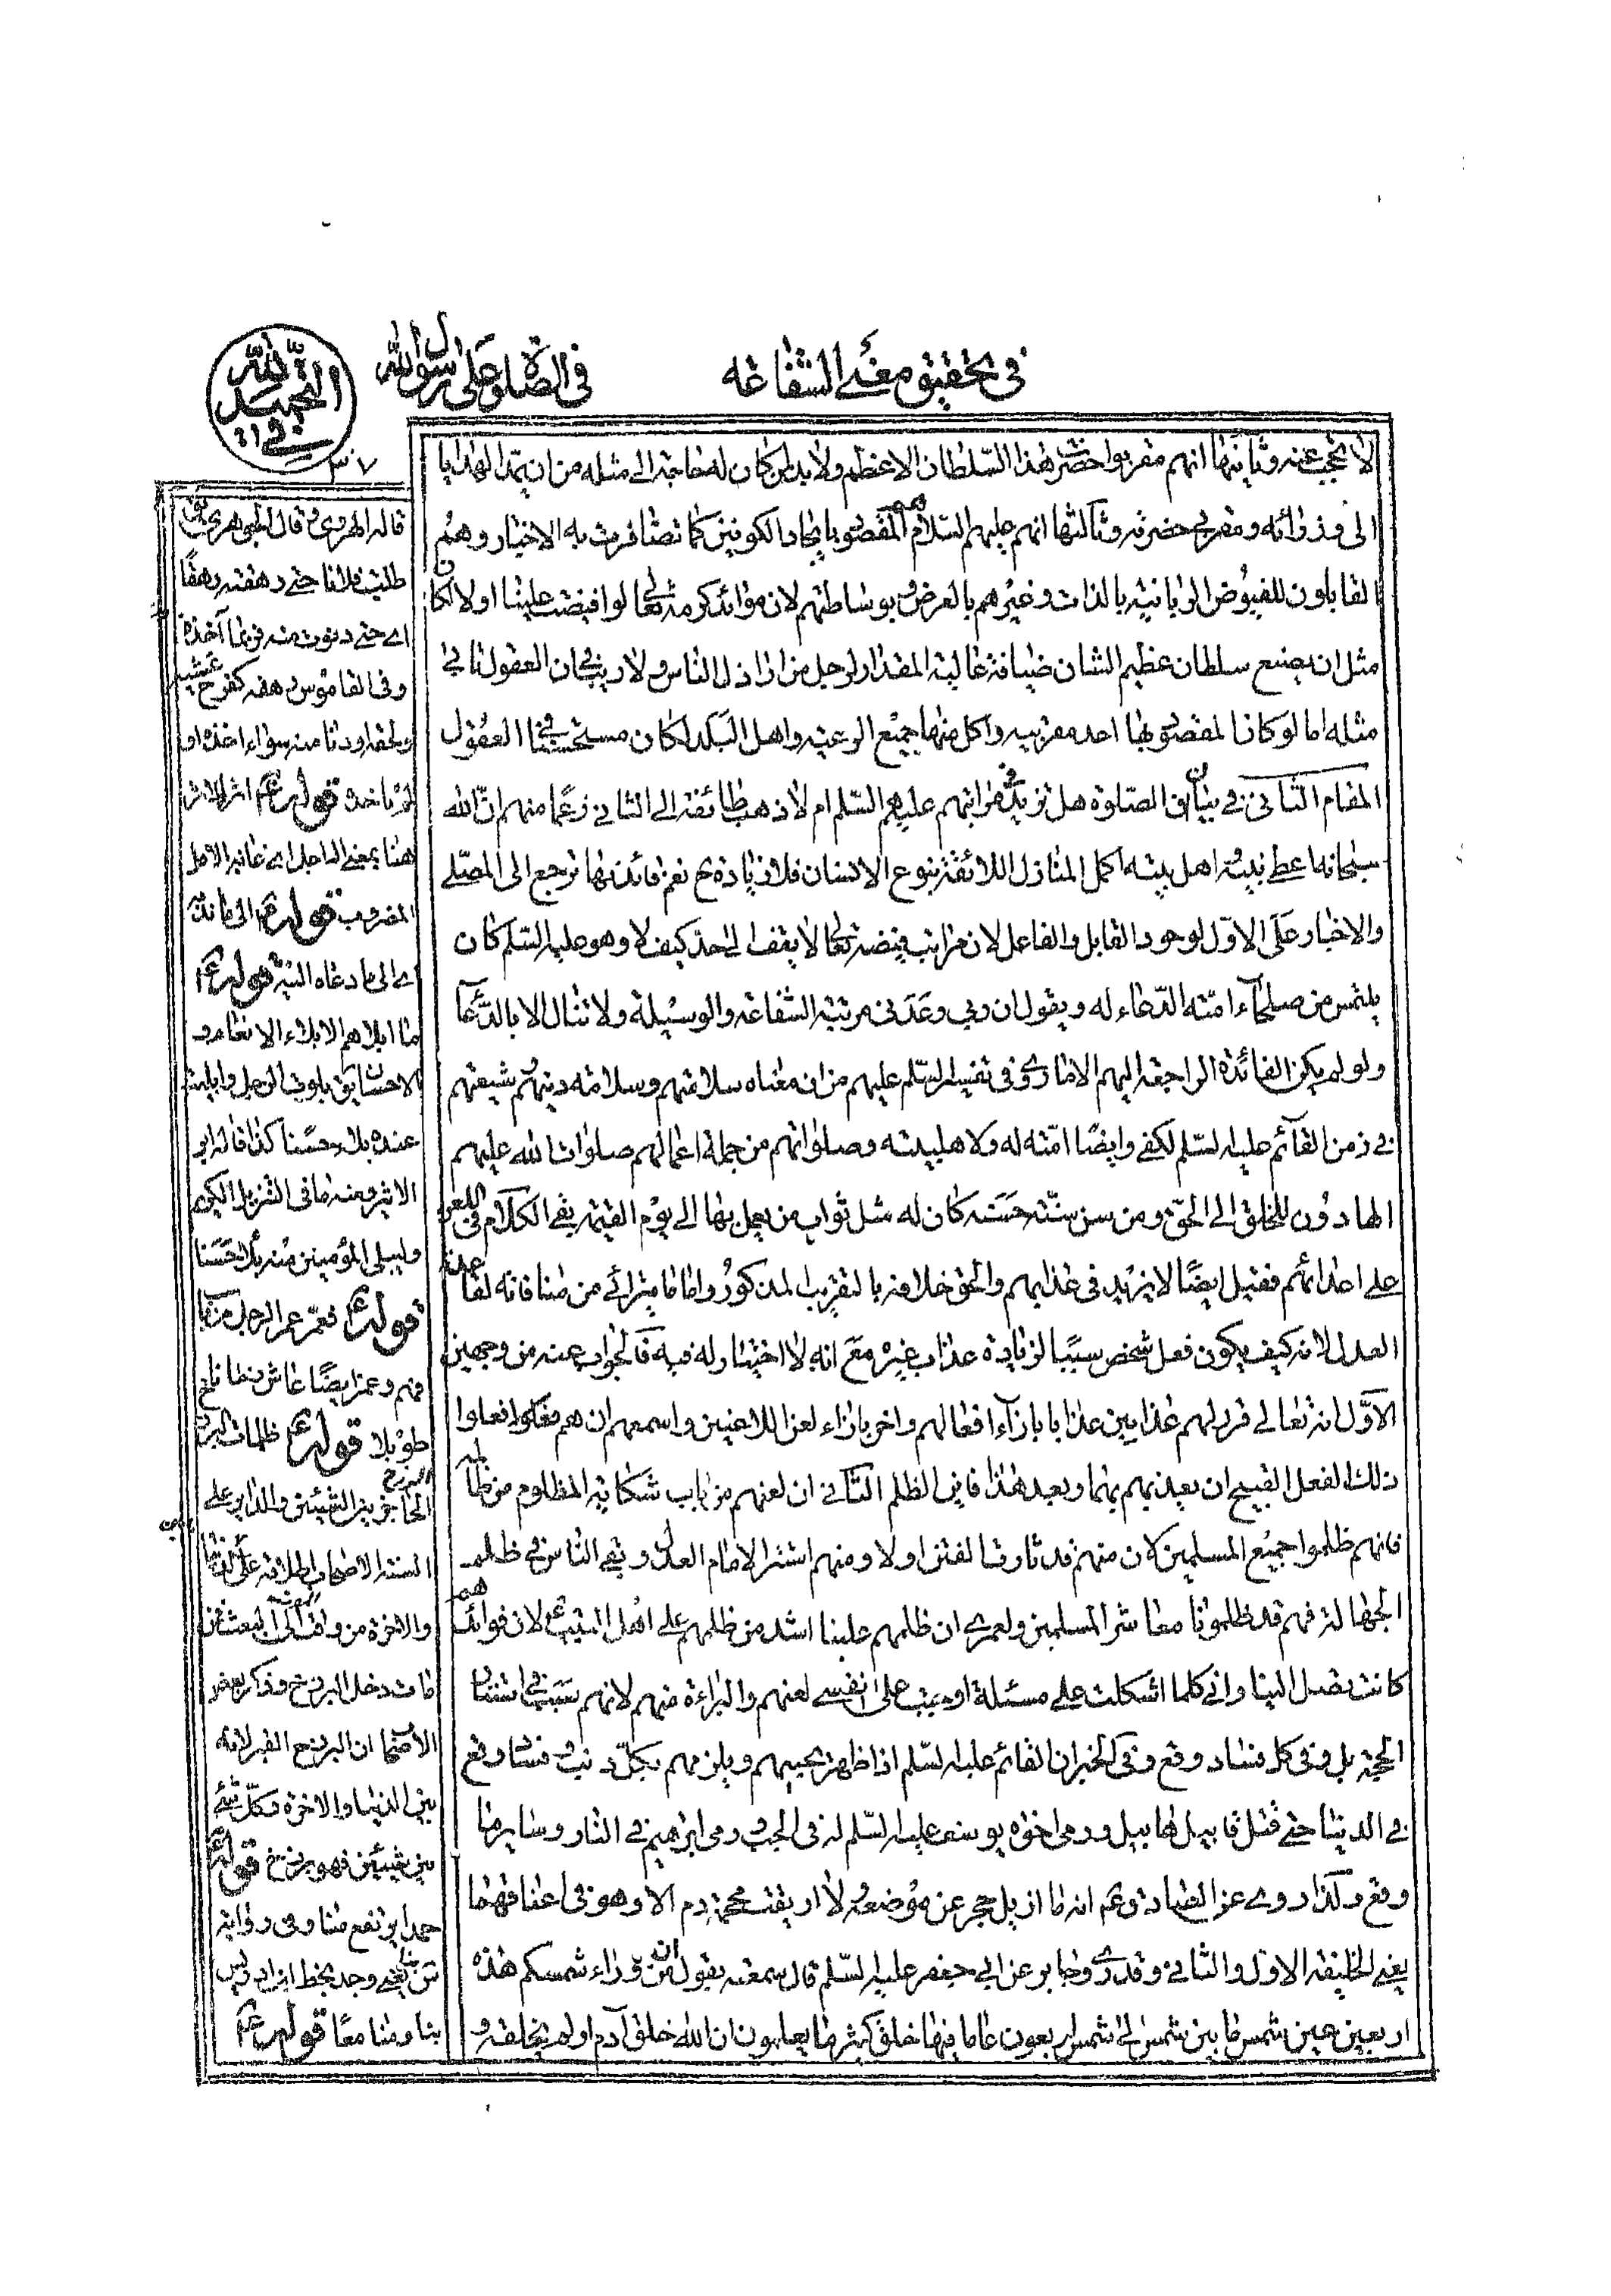 في تحقيق معنى الشفاعة
في الصلوة على رسول الله
التحميد لله
٣٧
لا يحجب عنه وثانيها انهم مقربوا حضرة هذا السلطان الاعظم ولا بد لمن كان له حاجة الى مثله من ان يهدى الهدايا
الى وزرائه ومقربى حضرته وثالثها انهم عليهم السلام هم المقصود بايجاد الكونين كما تضافرت به الاخبار وهم
القابلون للفيوض الربانية بالذات وغيرهم بالعرض وبوساطتهم لان موائد كرمه تعالى لو افيضت علينا اولا لكان
مثل ان يصنع سلطان عظيم الشان ضيافة عالية المقدار لرجل من اراذل الناس ولا ريب في ان العقول تابى
مثله اما لو كان المقصود بها احد مقربيه واكل منها جميع الرعية واهل البلد لكان مستحسنا في العقول
المقام الثاني في بيان ان الصلوة هل تزيد في مراتبهم عليهم السلام ام لا ذهب طائفة الى الثاني زعما منهم ان الله
سبحانه اعطى نبيه واهل بيته اكمل المنازل اللائقة بنوع الانسان فلا زيادة ح نعم فائدتها ترجع الى المصلى
والاخبار على الاول لوجود القابل والفاعل لان مراتب فيضه تعالى لا يقف الى حد كيف لا وهو عليه السلم كان
يلتمس من صلحاء امته الدعاء له ويقول ان ربي وعدني مرتبة الشفاعة والوسيلة ولا تنال الا بالدعاء
ولو لم يكن الفائدة الراجعة اليهم الا ما روى في تفسير السلم عليهم من ان معناه سلامتهم وسلامة دينهم وشيعتهم
في زمن القائم عليه السلم لكفى وايضا امته له ولاهل بيته وصلواتهم من جملة اعمالهم صلوات الله عليهم
الهادون للخلق الى الحق ومن سن سنة حسنة كان له مثل ثواب من يعمل بها الى يوم القيمة بقي الكلام في اللعن
على اعدائهم فقيل ايضا لا يزيد في عذابهم والحق خلافه بالتقريب المذكور واما ما يترائى من منافاته لقاعدة
العدل لانه كيف يكون فعل شخص سببا لزيادة عذاب غيره مع انه لا اختيار له فيه فالجواب عنه من وجهين
الاول انه تعالى قرر لهم عذابين عذابا بازآء افعالهم واخر بازاء لعن اللاعنين واسمعهم ان هم فعلوا
ذلك الفعل القبيح ان يعذبهم بهما وبعد هذا فاين الظلم الثاني ان لعنهم من باب شكاية المظلوم من ظالمه
فانهم ظلموا جميع المسلمين لان منهم قد ثارت الفتن اولا ومنهم استتر الامام العدل وبقي الناس في ظلمة
الجهالة فهم قد ظلمونا معاشر المسلمين ولعمري ان ظلمهم علينا اشد من ظلمهم على اهل البيت ع لان فوائدهم
كانت تصل الينا واني كلما اشكلت علي مسئلة اوجبت على نفسي لعنهم والبراءة منهم لانهم سبب في استتار
الحجة بل وفي كل فساد وقع وفي الخبر ان القائم عليه السلم اذا ظهر يحييهم ويلزمهم بكل ذنب وفساد وقع
في الدنيا حتى قتل قابيل لهابيل ورمى اخوة يوسف عليه السلم له في الجب ورمي ابرهيم في النار وساير ما
وقع وكذا روي عن الصادق ع انه ما ازيل حجر عن موضعه ولا اريقت محجمة دم الا وهو في اعناقهما
يعني الخليفة الاول والثاني وقد روى جابر عن ابي جعفر عليه السلم قال سمعته يقول ان من وراء شمسكم هذه
اربعين عين شمس ما بين شمس الى شمس اربعون عاما فيها خلق كثير ما يعلمون ان الله خلق آدم او لم يخلقه و
قاله الهروي وقال الجوهري يق
طلبت فلانا حتى رهقته رهقا
اي حتى دنوت منه فربما آخذه
وفي القاموس رهقه كفرح غشيه
ولحقه او دنا منه سواء اخذه او
لم ياخذه قوله ع اثر الاثر
هنا بمعنى الاجل اي غاية الاجل
المضروب قوله ع الى ما ندبه
اي الى ما دعاه اليه قوله ع
ما ابلاهم الابلاء الانعام و
الاحسان يق بلوت الرجل وابليت
عنده بلاء حسنا كذا قاله ابن
الاثير ومنه ما في التنزيل الكريم
وليبلى المؤمنين منه بلاء حسنا
قوله ع فعمر عمر الرجل من باب
فهم وعمر ايضا عاش زمانا
طويلا قوله ع ظلمات البرزخ
البرزخ الحاجز بين الشيئين والدائر على
السنة الاصحاب اطلاقه على ما بين الدنيا
والاخرة من وقت الموت الى البعث فمن
مات دخل البرزخ وذكر بعض
الاصحاب ان البرزخ القبر لانه
بين الدنيا والاخرة وكل شئ
بين شيئين فهو برزخ قوله ع
حمدا يرتفع منا وفي رواية
س بنا يعني وجد بخط ابن ادريس
بنا ومنا معا قوله ع